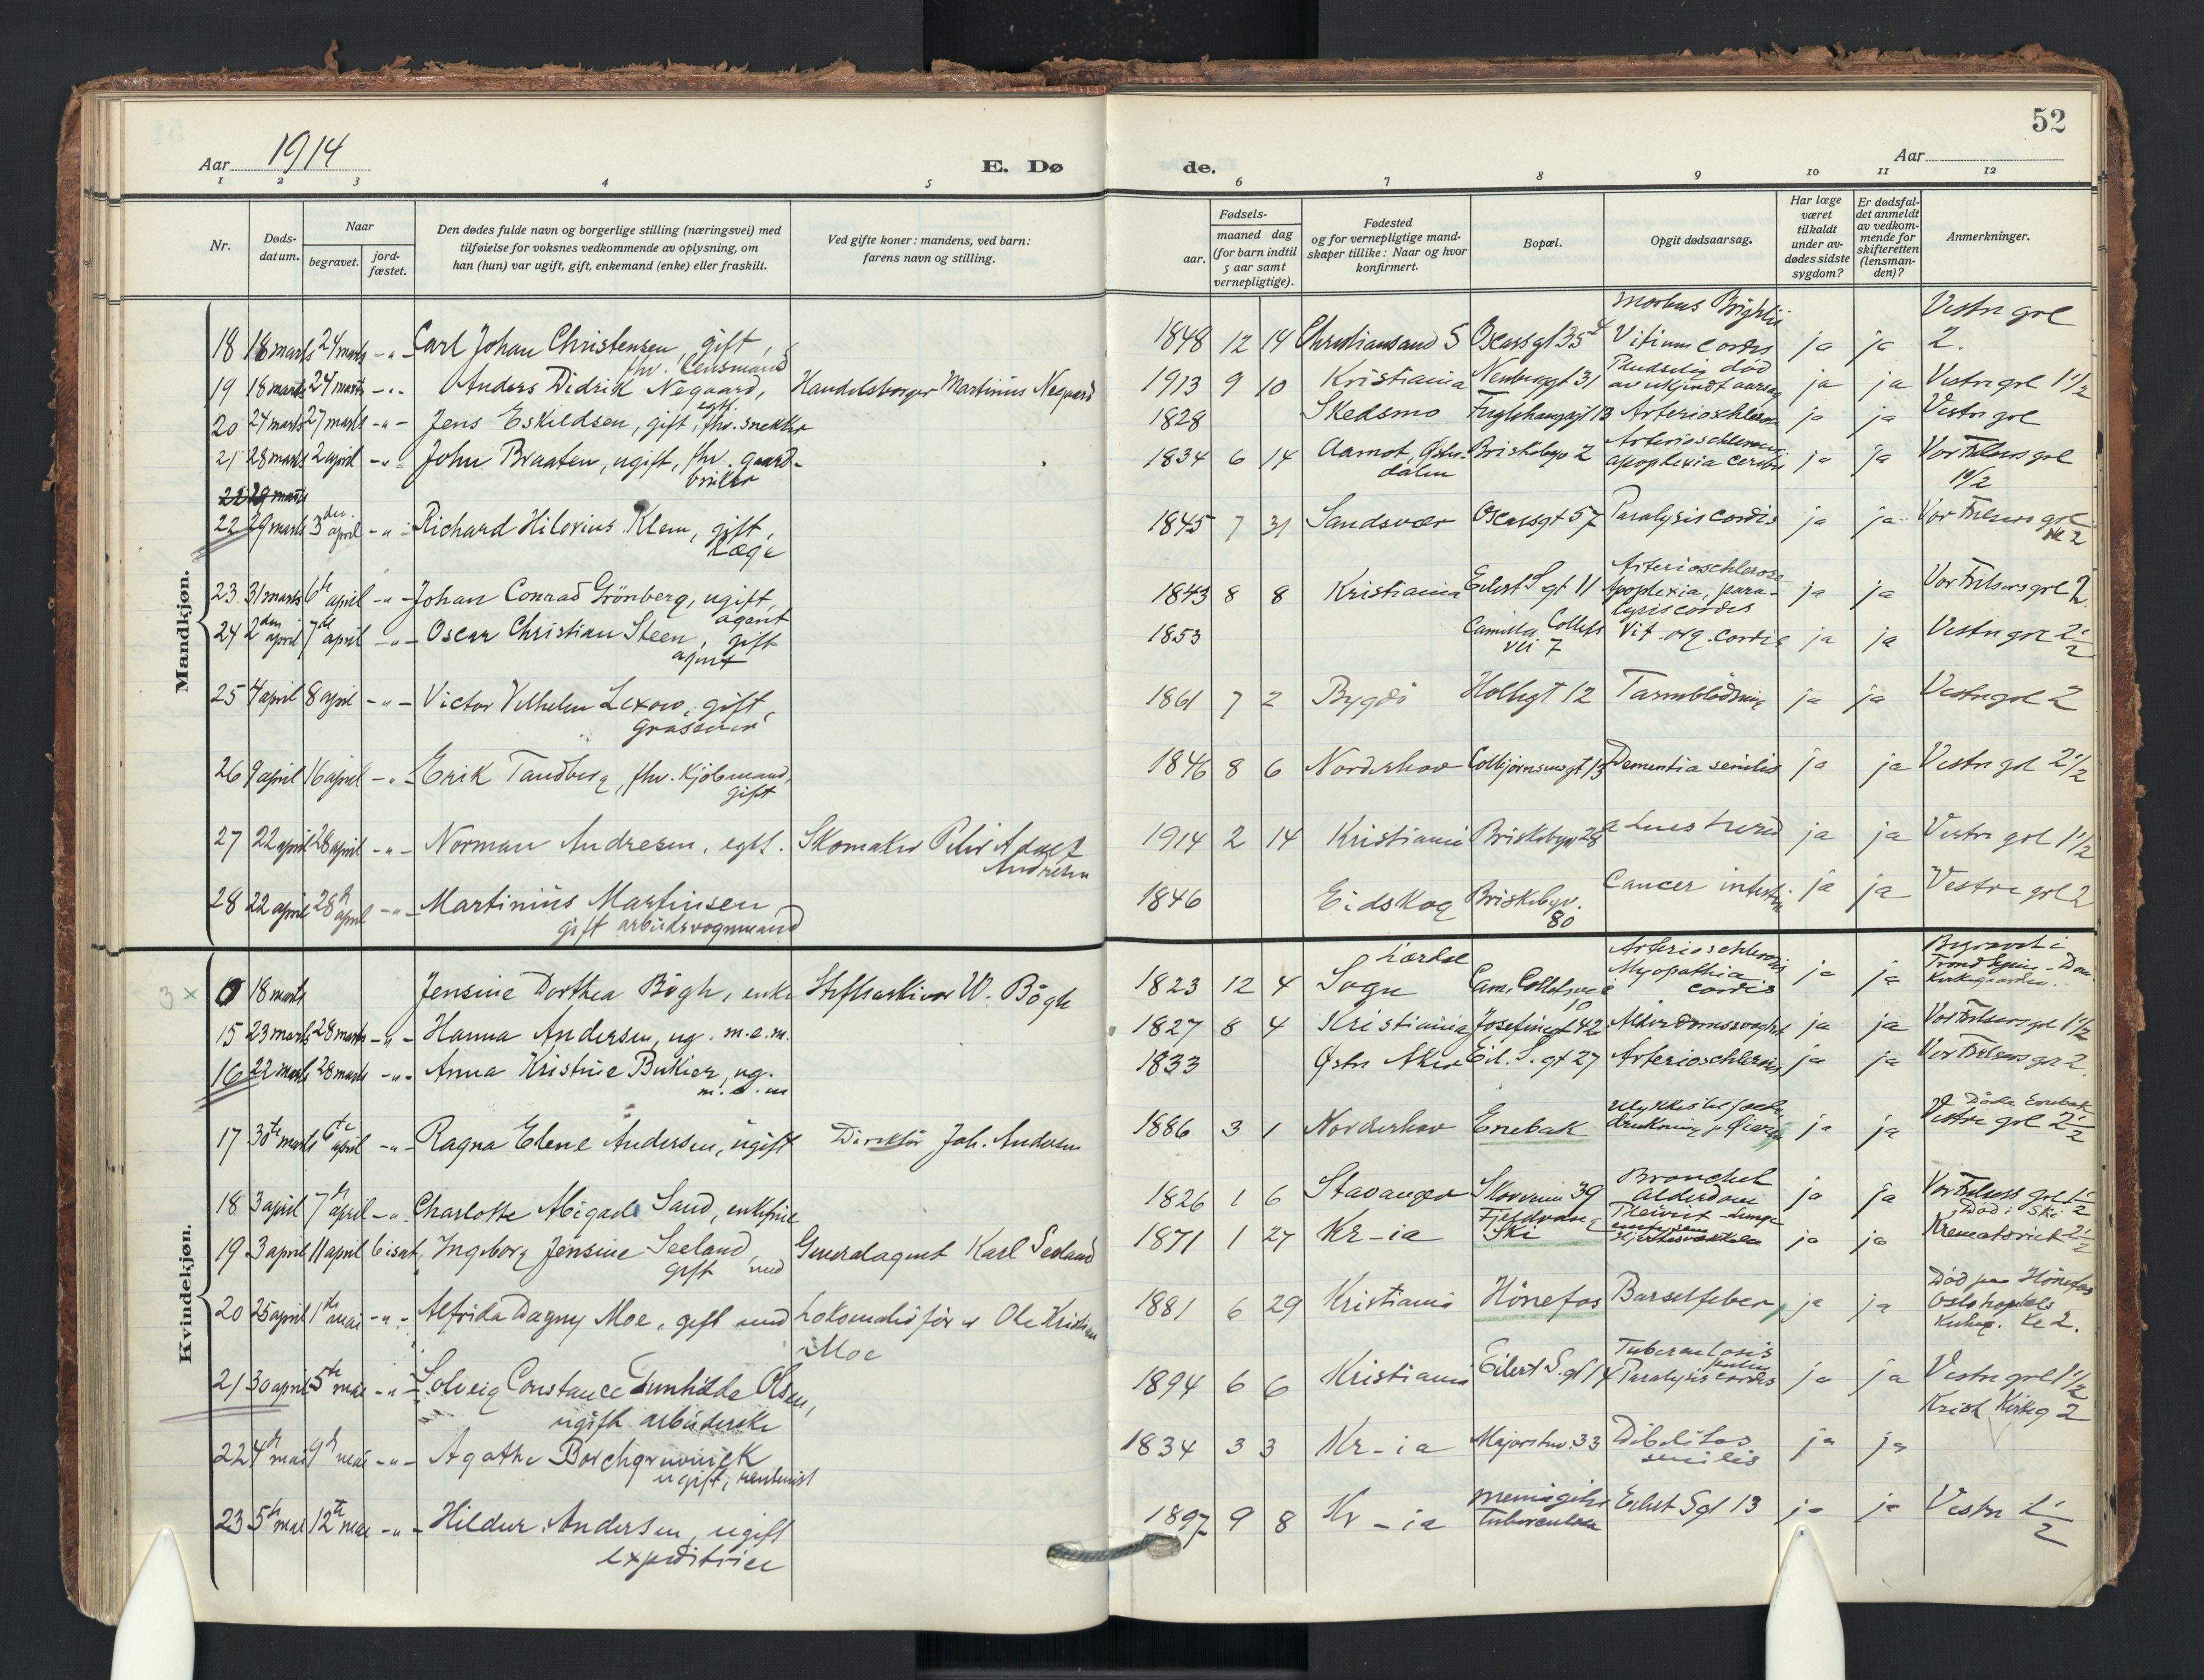 52
Aar 1914
E. Dø
de.
Aar
1 2 3 4 5 6 7 8 9 10 11 12
Nr.
Døds-
datum.
Naar
begravet.
jord-
fæstet.
Den dødes fulde navn og borgerlige stilling (næringsvei) med
tilføielse for voksnes vedkommende av oplysning, om
han (hun) var ugift, gift, enkemand (enke) eller fraskilt.
Ved gifte koner: mandens, ved barn:
farens navn og stilling.
Fødsels-
aar.
maaned dag
(for barn indtil
5 aar samt
vernepligtige).
Fødested
og for vernepligtige mand-
skaper tillike: Naar og hvor
konfirmert.
Bopæl.
Opgit dødsaarsag.
Har læge
været
tilkaldt
under av-
dødes sidste
sygdom?
Er dødsfal-
det anmeldt
av vedkom-
mende for
skifteretten
(lensman-
den)?
Anmerkninger.
Mandkjøn.
18 18 marts 24 marts -"- Carl Johan Christensen, gift, fhv. Lensmand 1848 12 14 Christiansand S Oscarsgt 35 Morbus Brightii Vitium cordis ja ja Vestre grl 2.
19 18 marts 24 marts -"- Anders Didrik Negaard, egtf. Handelsborger Martinius Negaard 1913 9 10 Kristiania Neuberggt 31 Pludselig død av ukjendt aarsag ja ja Vestre grl 1 1/2
20 24 marts 27 marts -"- Jens Eskildsen, gift, fhv. snekker 1828 Skedsmo Fuglehauggt 13 Arterioschlerose ja ja Vestre grl
21 28 marts 2 april -"- John Braaten, ugift, fhv. gaard- bruker 1834 6 14 Aamot, Østerdalen Briskebyv 2 Arterioschlerosis apoplexia cerebri ja ja Vor Frelsers grl 1 1/2
22 29 marts
22 29 marts 3 den april -"- Richard Hilorius Klem, gift, Læge 1845 7 31 Sandsvær Oscarsgt 57 Paralysis cordis ja ja Vor Frelsers grl kl 2
23 31 marts 6 te april -"- Johan Conrad Grönberg, ugift, agent 1843 8 8 Kristiania Eilert S gt 11 Arterioschlerose Apoplexia, para- lysis cordis ja ja Vor Frelsers grl 2.
24 2 den april 7 de april -"- Oscar Christian Steen, gift agent 1853 Camilla Colletts vei 7 Vit. org. cordis ja ja Vestre grl 2 1/2
25 4 april 8 april -"- Victor Vilhelm Lexow, gift, grosserer 1861 7 2 Bygdö Holtegt 12 Tarmblödning ja ja Vestre grl 2
26 9 april 16 april -"- Erik Tandberg, fhv. Kjöbmand, gift 1846 8 6 Norderhov Colbjørnsensgt 13 Dementia senilis ja ja Vestre grl 2 1/2
27 22 april 28 april -"- Norman Andresen, egtf. Skomaker Peder Adolf Andresen 1914 2 14 Kristiania Briskebyv 28 ja ja Vestre grl 1 1/2
28 22 april 28 april -"- Martinius Martinsen gift arbeidsvognmand 1846 Eidskog Briskebyv. 80 Cancer intestin. ja ja Vestre grl 2
Kvindekjøn.
3 x 0 18 marts Jensine Dorthea Bögh, enke Stiftsarkivar W. Bögh 1823 12 4 Lærdal Sogn Cam. Colletsvei 10 Arterioschlerosis Myopathia cordis ja ja Begravet i Trondhjem - Dom Kirkegaarden.
15 23 marts 28 marts -"- Hanna Andersen, ug. m.e.m. 1827 8 4 Kristiania Josefinegt 42 Alderdomssvaghet ja ja Vor Frelsers grl 1 1/2
16 22 marts 28 marts -"- Anna Kristine Bukier, ug. m.e.m 1833 Østre Aker Eil. S. gt 27 Arterioschlerosis ja ja Vor Frelsers grl 2.
17 30 te marts 6 te april -"- Ragna Elene Andersen, ugift Direktör Joh. Andersen 1886 3 1 Norderhov Enebak Ulykkestilfælde, drukning ja ja Döde Enebak Vestre grl 2 1/2
18 3 april 7 de april -"- Charlotte Abigael Sand, enkefrue 1826 1 6 Stavanger Skovveien 39 Bronchit Alderdom ja ja Vor Frelsers grl 1 1/2
19 3 april 11 april 6 i sat. Ingeborg Jensine Seeland, gift med Generalagent Karl Seeland 1871 1 27 Kr-ia Fjeldvang Ski Pleurit - Lunge- emfysem ja ja Död i Ski. Krematoriet 2 1/2
20 25 april 1 ste mai -"- Alfrida Dagny Moe, gift med Lokomotivförer Ole Kristian Moe 1881 6 29 Kristiania Hönefos Barselfeber ja ja Död paa Hönefos Oslo hospitals Kirkeg. Kl 2.
21 30 april 5 te mai -"- Solveig Constance Gunhilda Olsen, ugift arbeiderske 1894 6 6 Kristiania Eilert S. gt 14 Tuberculosis pulm Paralysis cordis ja ja Vestre grl 1 1/2
22 4 de mai 9 de mai -"- Agathe Borchgrevinck ugift, rentenist 1834 3 3 Kr-ia Majorstuv. 33 Debilitas senilis ja ja Krist Kirkeg 2
23 5 te mai 12 te mai -"- Hildur Andersen, ugift expeditrice 1897 9 8 Kr-ia Meningitis Tuberculosa Eilert S gt 13 ja ja Vestre 1 1/2